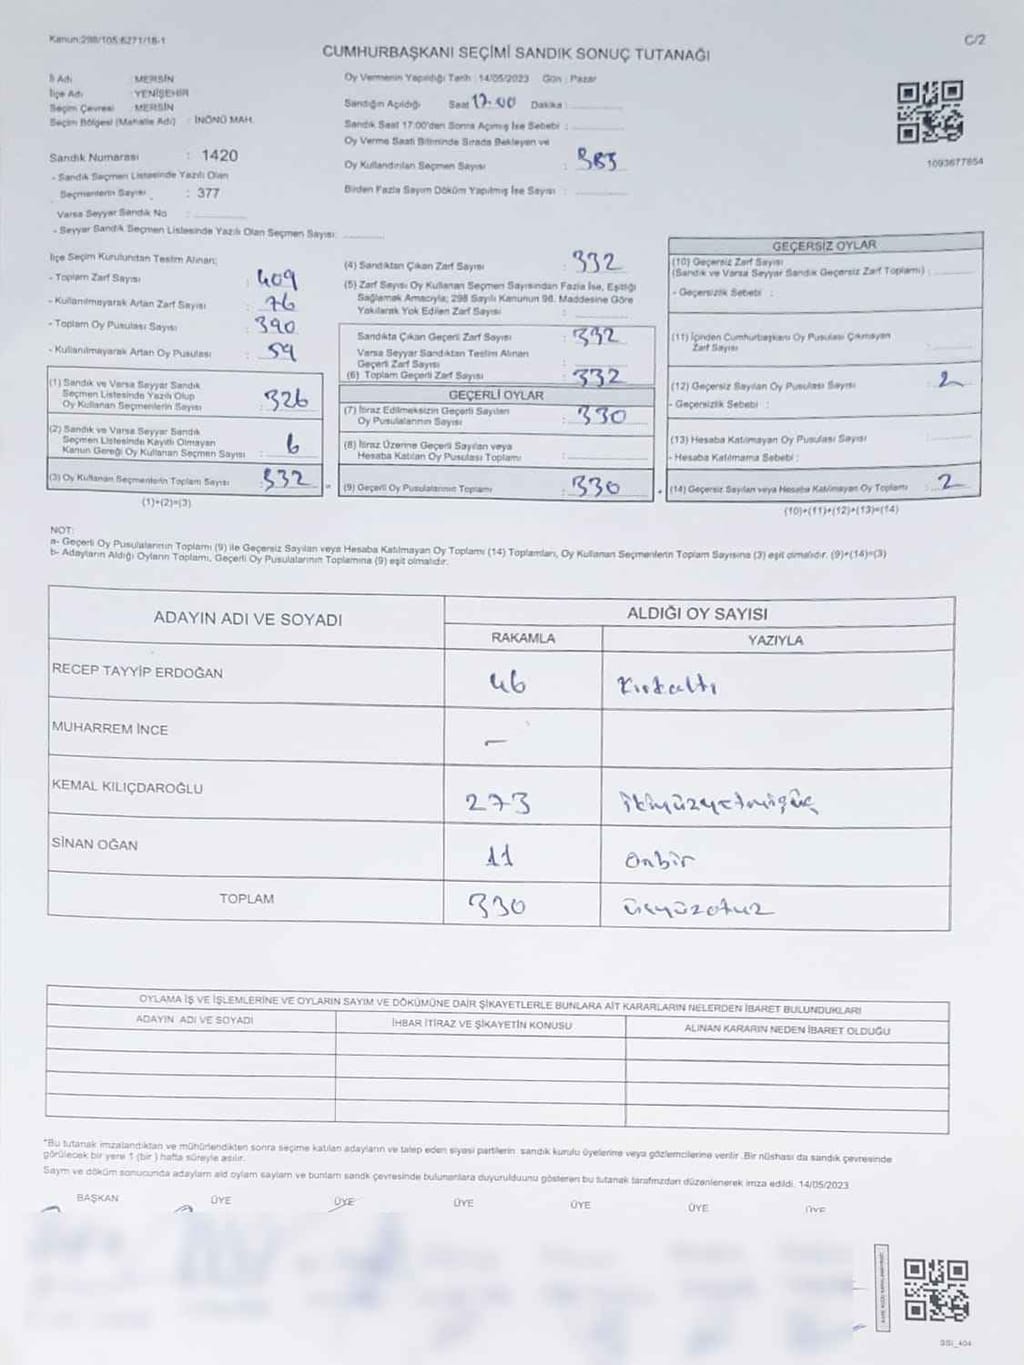 Kanun:298/105:6271/16-1
C/2
CUMHURBAŞKANI SEÇİMİ SANDIK SONUÇ TUTANAĞI
İl Adı : MERSİN
İlçe Adı : YENİŞEHİR
Seçim Çevresi : MERSİN
Seçim Bölgesi (Mahalle Adı) : İNÖNÜ MAH.
Sandık Numarası : 1420
- Sandık Seçmen Listesinde Yazılı Olan
Seçmenlerin Sayısı : 377
Varsa Seyyar Sandık No :
- Seyyar Sandık Seçmen Listesinde Yazılı Olan Seçmen Sayısı:
Oy Vermenin Yapıldığı Tarih : 14/05/2023 Gün : Pazar
Sandığın Açıldığı Saat 17.00 Dakika :
Sandık Saat 17:00'den Sonra Açılmış İse Sebebi :
Oy Verme Saati Bitiminde Sırada Bekleyen ve
Oy Kullandırılan Seçmen Sayısı :
Birden Fazla Sayım Döküm Yapılmış İse Sayısı :
1093677854
İlçe Seçim Kurulundan Teslim Alınan;
- Toplam Zarf Sayısı : 409
- Kullanılmayarak Artan Zarf Sayısı : 76
- Toplam Oy Pusulası Sayısı : 390
- Kullanılmayarak Artan Oy Pusulası : 59
(1) Sandık ve Varsa Seyyar Sandık
Seçmen Listesinde Yazılı Olup
Oy Kullanan Seçmenlerin Sayısı : 326
(2) Sandık ve Varsa Seyyar Sandık
Seçmen Listesinde Kayıtlı Olmayan
Kanun Gereği Oy Kullanan Seçmen Sayısı : 6
(3) Oy Kullanan Seçmenlerin Toplam Sayısı : 332
(1)+(2)=(3)
(4) Sandıktan Çıkan Zarf Sayısı : 332
(5) Zarf Sayısı Oy Kullanan Seçmen Sayısından Fazla İse, Eşitliği
Sağlamak Amacıyla; 298 Sayılı Kanunun 98. Maddesine Göre
Yakılarak Yok Edilen Zarf Sayısı :
Sandıkta Çıkan Geçerli Zarf Sayısı : 332
Varsa Seyyar Sandıktan Teslim Alınan
Geçerli Zarf Sayısı :
(6) Toplam Geçerli Zarf Sayısı : 332
GEÇERLİ OYLAR
(7) İtiraz Edilmeksizin Geçerli Sayılan
Oy Pusulalarının Sayısı : 330
(8) İtiraz Üzerine Geçerli Sayılan veya
Hesaba Katılan Oy Pusulası Toplamı :
(9) Geçerli Oy Pusulalarının Toplamı : 330
GEÇERSİZ OYLAR
(10) Geçersiz Zarf Sayısı
(Sandık ve Varsa Seyyar Sandık Geçersiz Zarf Toplamı) :
- Geçersizlik Sebebi :
(11) İçinden Cumhurbaşkanı Oy Pusulası Çıkmayan
Zarf Sayısı :
(12) Geçersiz Sayılan Oy Pusulası Sayısı : 2
- Geçersizlik Sebebi :
(13) Hesaba Katılmayan Oy Pusulası Sayısı :
- Hesaba Katılmama Sebebi :
(14) Geçersiz Sayılan veya Hesaba Katılmayan Oy Toplamı : 2
(10)+(11)+(12)+(13)=(14)
NOT:
a- Geçerli Oy Pusulalarının Toplamı (9) ile Geçersiz Sayılan veya Hesaba Katılmayan Oy Toplamı (14) Toplamları, Oy Kullanan Seçmenlerin Toplam Sayısına (3) eşit olmalıdır. (9)+(14)=(3)
b- Adayların Aldığı Oyların Toplamı, Geçerli Oy Pusulalarının Toplamına (9) eşit olmalıdır.
ADAYIN ADI VE SOYADI
ALDIĞI OY SAYISI
RAKAMLA YAZIYLA
RECEP TAYYİP ERDOĞAN 46 Kırkaltı
MUHARREM İNCE –
KEMAL KILIÇDAROĞLU 273 ikiyüzyetmişüç
SİNAN OĞAN 11 onbir
TOPLAM 330 üçyüzotuz
OYLAMA İŞ VE İŞLEMLERİNE VE OYLARIN SAYIM VE DÖKÜMÜNE DAİR ŞİKAYETLERLE BUNLARA AİT KARARLARIN NELERDEN İBARET BULUNDUKLARI
ADAYIN ADI VE SOYADI İHBAR İTİRAZ VE ŞİKAYETİN KONUSU ALINAN KARARIN NEDEN İBARET OLDUĞU
"Bu tutanak imzalandıktan ve mühürlendikten sonra seçime katılan adayların ve talep eden siyasi partilerin sandık kurulu üyelerine veya gözlemcilerine verilir .Bir nüshası da sandık çevresinde
görülecek bir yere 1 (bir ) hafta süreyle asılır.
Sayım ve döküm sonucunda adayların ald oyların sayların ve bunların sandk çevresinde bulunanlara duyurulduunu gösteren bu tutanak tarafmzdan düzenlenerek imza edildi. 14/05/2023
BAŞKAN ÜYE ÜYE ÜYE ÜYE ÜYE ÜYE